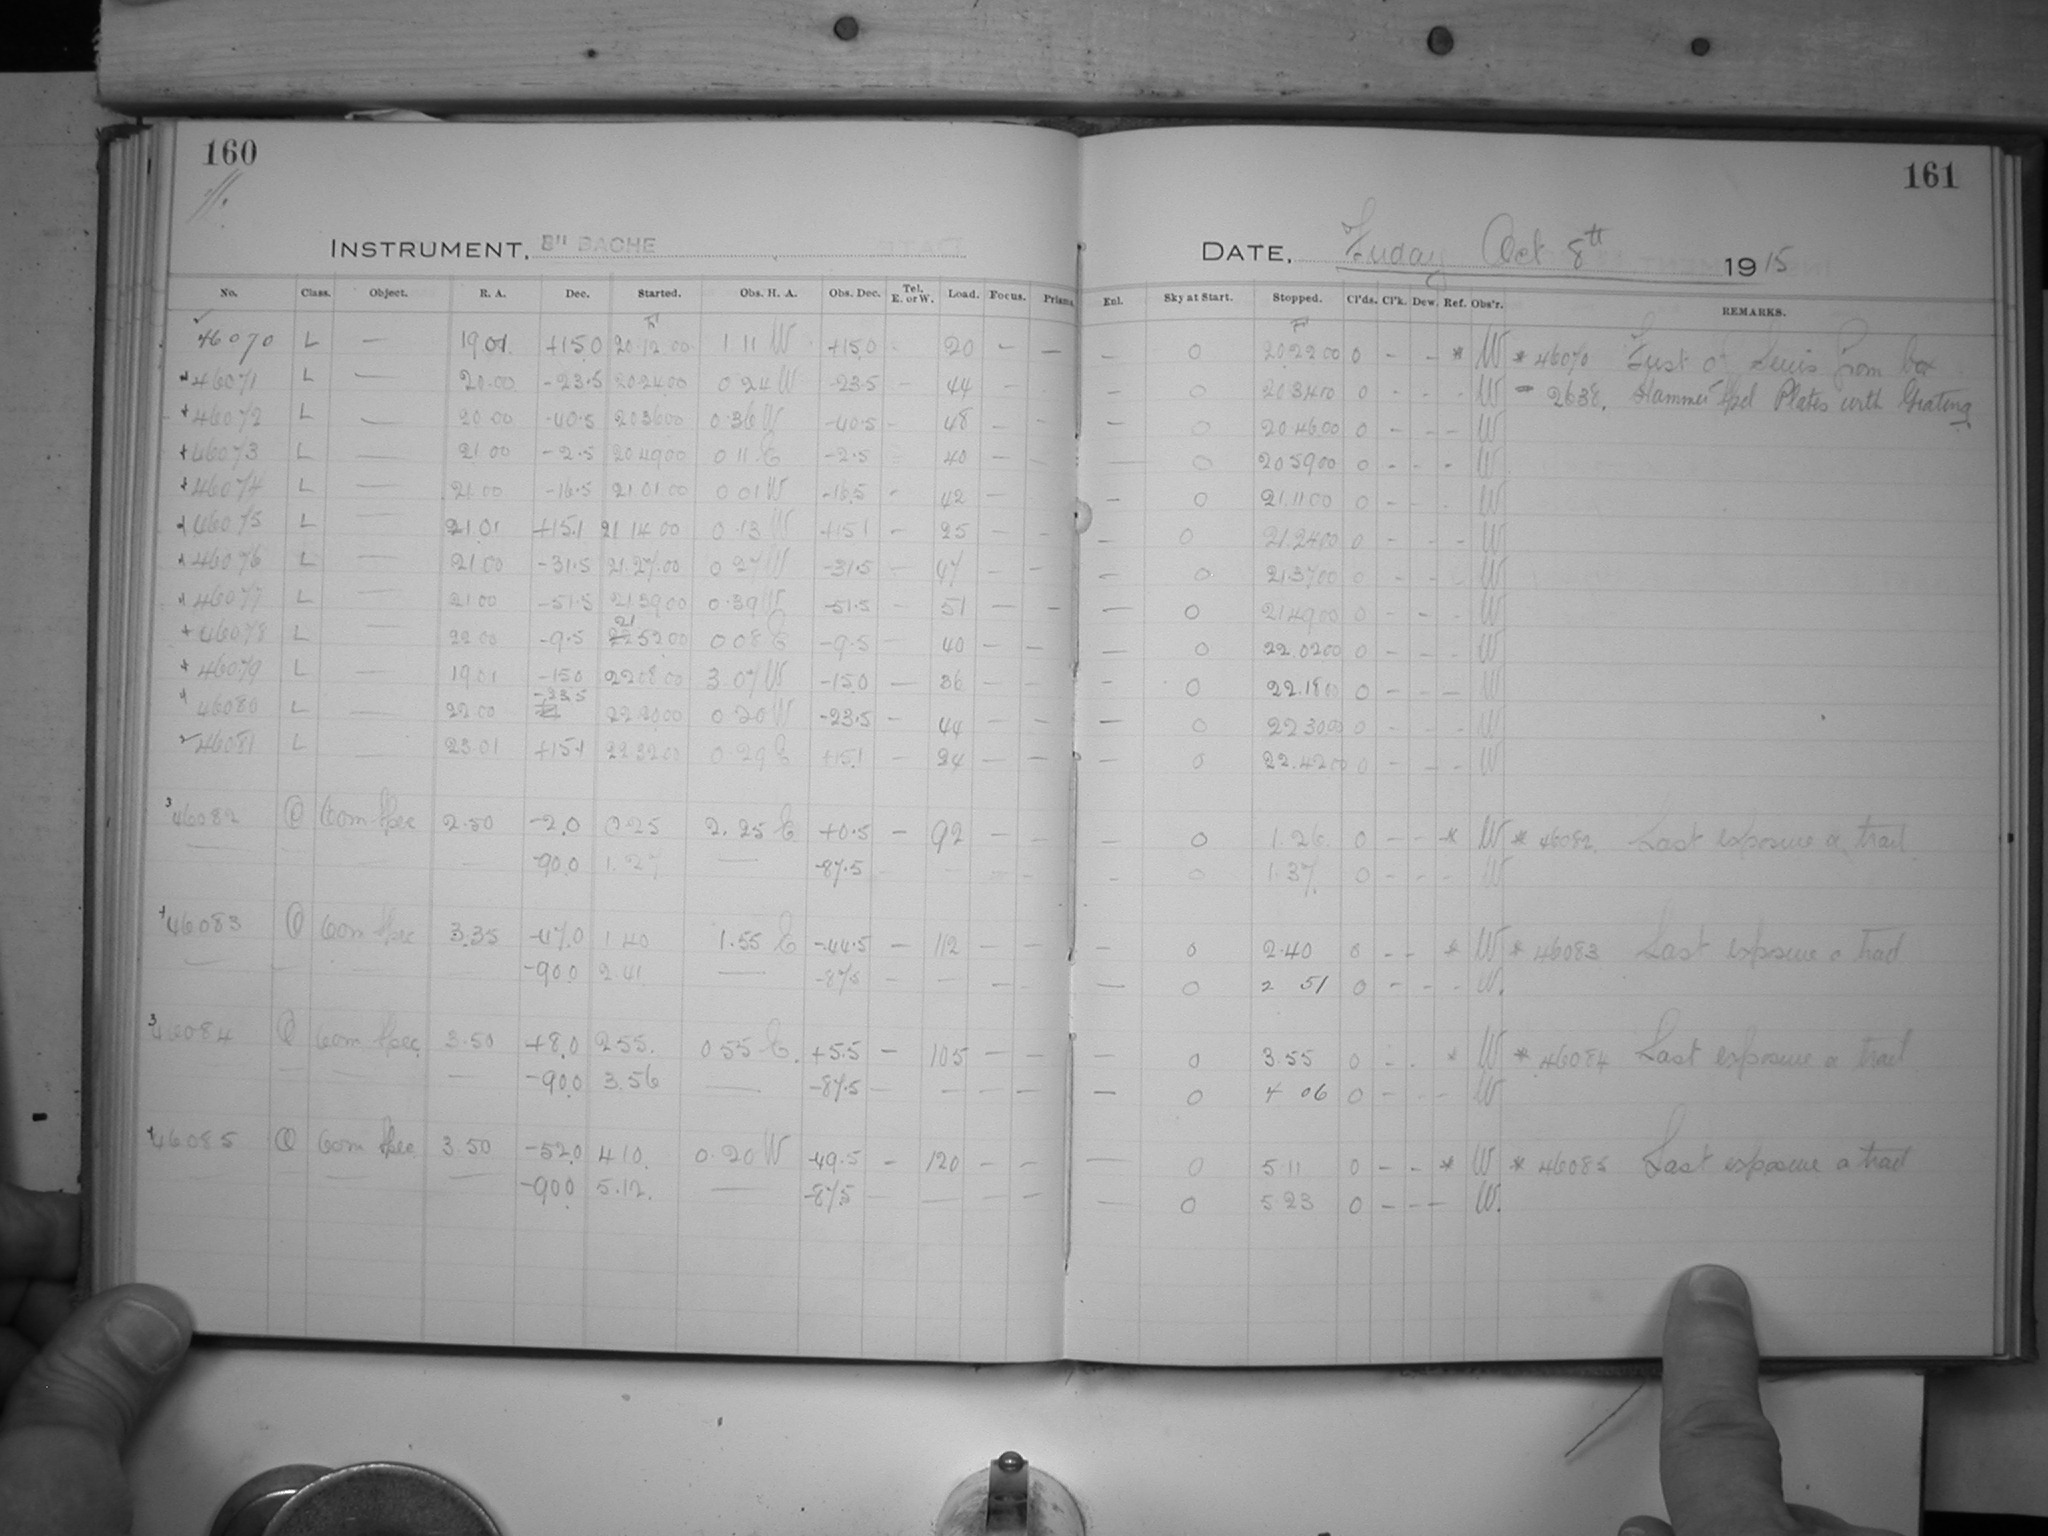 160
161
INSTRUMENT, 8" BACHE
DATE, Friday Oct 8th 1915
No. Class. Object. R. A. Dec. Started. Obs. H. A. Obs. Dec. Tel. E. or W. Load. Focus. Prisms. Enl. Sky at Start. Stopped. Cl'ds. Cl'k. Dew. Ref. Obs'r. REMARKS.
46070 L — 19 01 +15.0 20 12 00 1 11 W +15.0 - 20 - — — 0 20 22 00 0 - - * W * 46070 First of Series from box
46071 L — 20.00 -23.5 20 24 00 0 24 W -23.5 - 44 — — — 0 20 34 00 0 - - - W = 2638. Hammer Spcl Plates with Grating
46072 L — 20 00 -40.5 20 36 00 0.36 W -40.5 - 48 — — — 0 20 46 00 0 - - - W
46073 L — 21 00 -2.5 20 49 00 0 11 E -2.5 40 — — — 0 20 59 00 0 - - - W
46074 L — 21 00 -16.5 21 01 00 0 01 W -16.5 - 42 — — — 0 21 11 00 0 - - - W
46075 L — 21.01 +15.1 21 14 00 0 13 W +15.1 - 25 — — — 0 21 24 00 0 - - - W
46076 L — 21 00 -31.5 21.27.00 0 27 W -31.5 - 47 — — — 0 21 37 00 0 - - - W
46077 L — 21 00 -51.5 21 39 00 0.39 W -51.5 - 51 — — — 0 21 49 00 0 - - - W
46078 L — 22 00 -9.5 21 52 00 0 08 E -9.5 - 40 — — — 0 22.02 00 0 - - - W
46079 L — 19 01 -15.0 22 08 00 3 07 W -15.0 — 36 — — - 0 22.18 00 0 - - - W
46080 L — 22 00 -23.5 22 20 00 0 20 W -23.5 - 44 — — — 0 22 30 00 0 - - - W
46081 L — 23.01 +15.1 22 32 00 0.29 E +15.1 - 24 — — — 0 22.42 00 0 - - - W
46082 Q Com Spec 2.50 -2.0 0 25 2.25 E +0.5 - 92 — — — 0 1.26 0 - - * W * 46082. Last exposure a trail
— — — — -90.0 1.27 — -87.5 — — — — — 0 1.37. 0 - - - W
46083 Q Com Spec 3.35 -47.0 1 40 1.55 E -44.5 - 112 — — — 0 2.40 0 - - * W * 46083 Last exposure a trail
— — — — -90.0 2.41 — -87.5 - — — — — 0 2 51 0 - - - W.
46084 Q Com Spec 3.50 +8.0 2 55. 0 55 E. +5.5 - 105 — — — 0 3.55 0 - - * W * 46084 Last exposure a trail
— — — — -90.0 3.56 — -87.5 — — — — — 0 4 06 0 - - - W
46085 Q Com Spec 3.50 -52.0 4 10. 0.20 W -49.5 - 120 — — — 0 5 11 0 - - * W * 46085 Last exposure a trail
— — — — -90.0 5.12. — -87.5 — — — — — 0 5 23 0 - - - W.